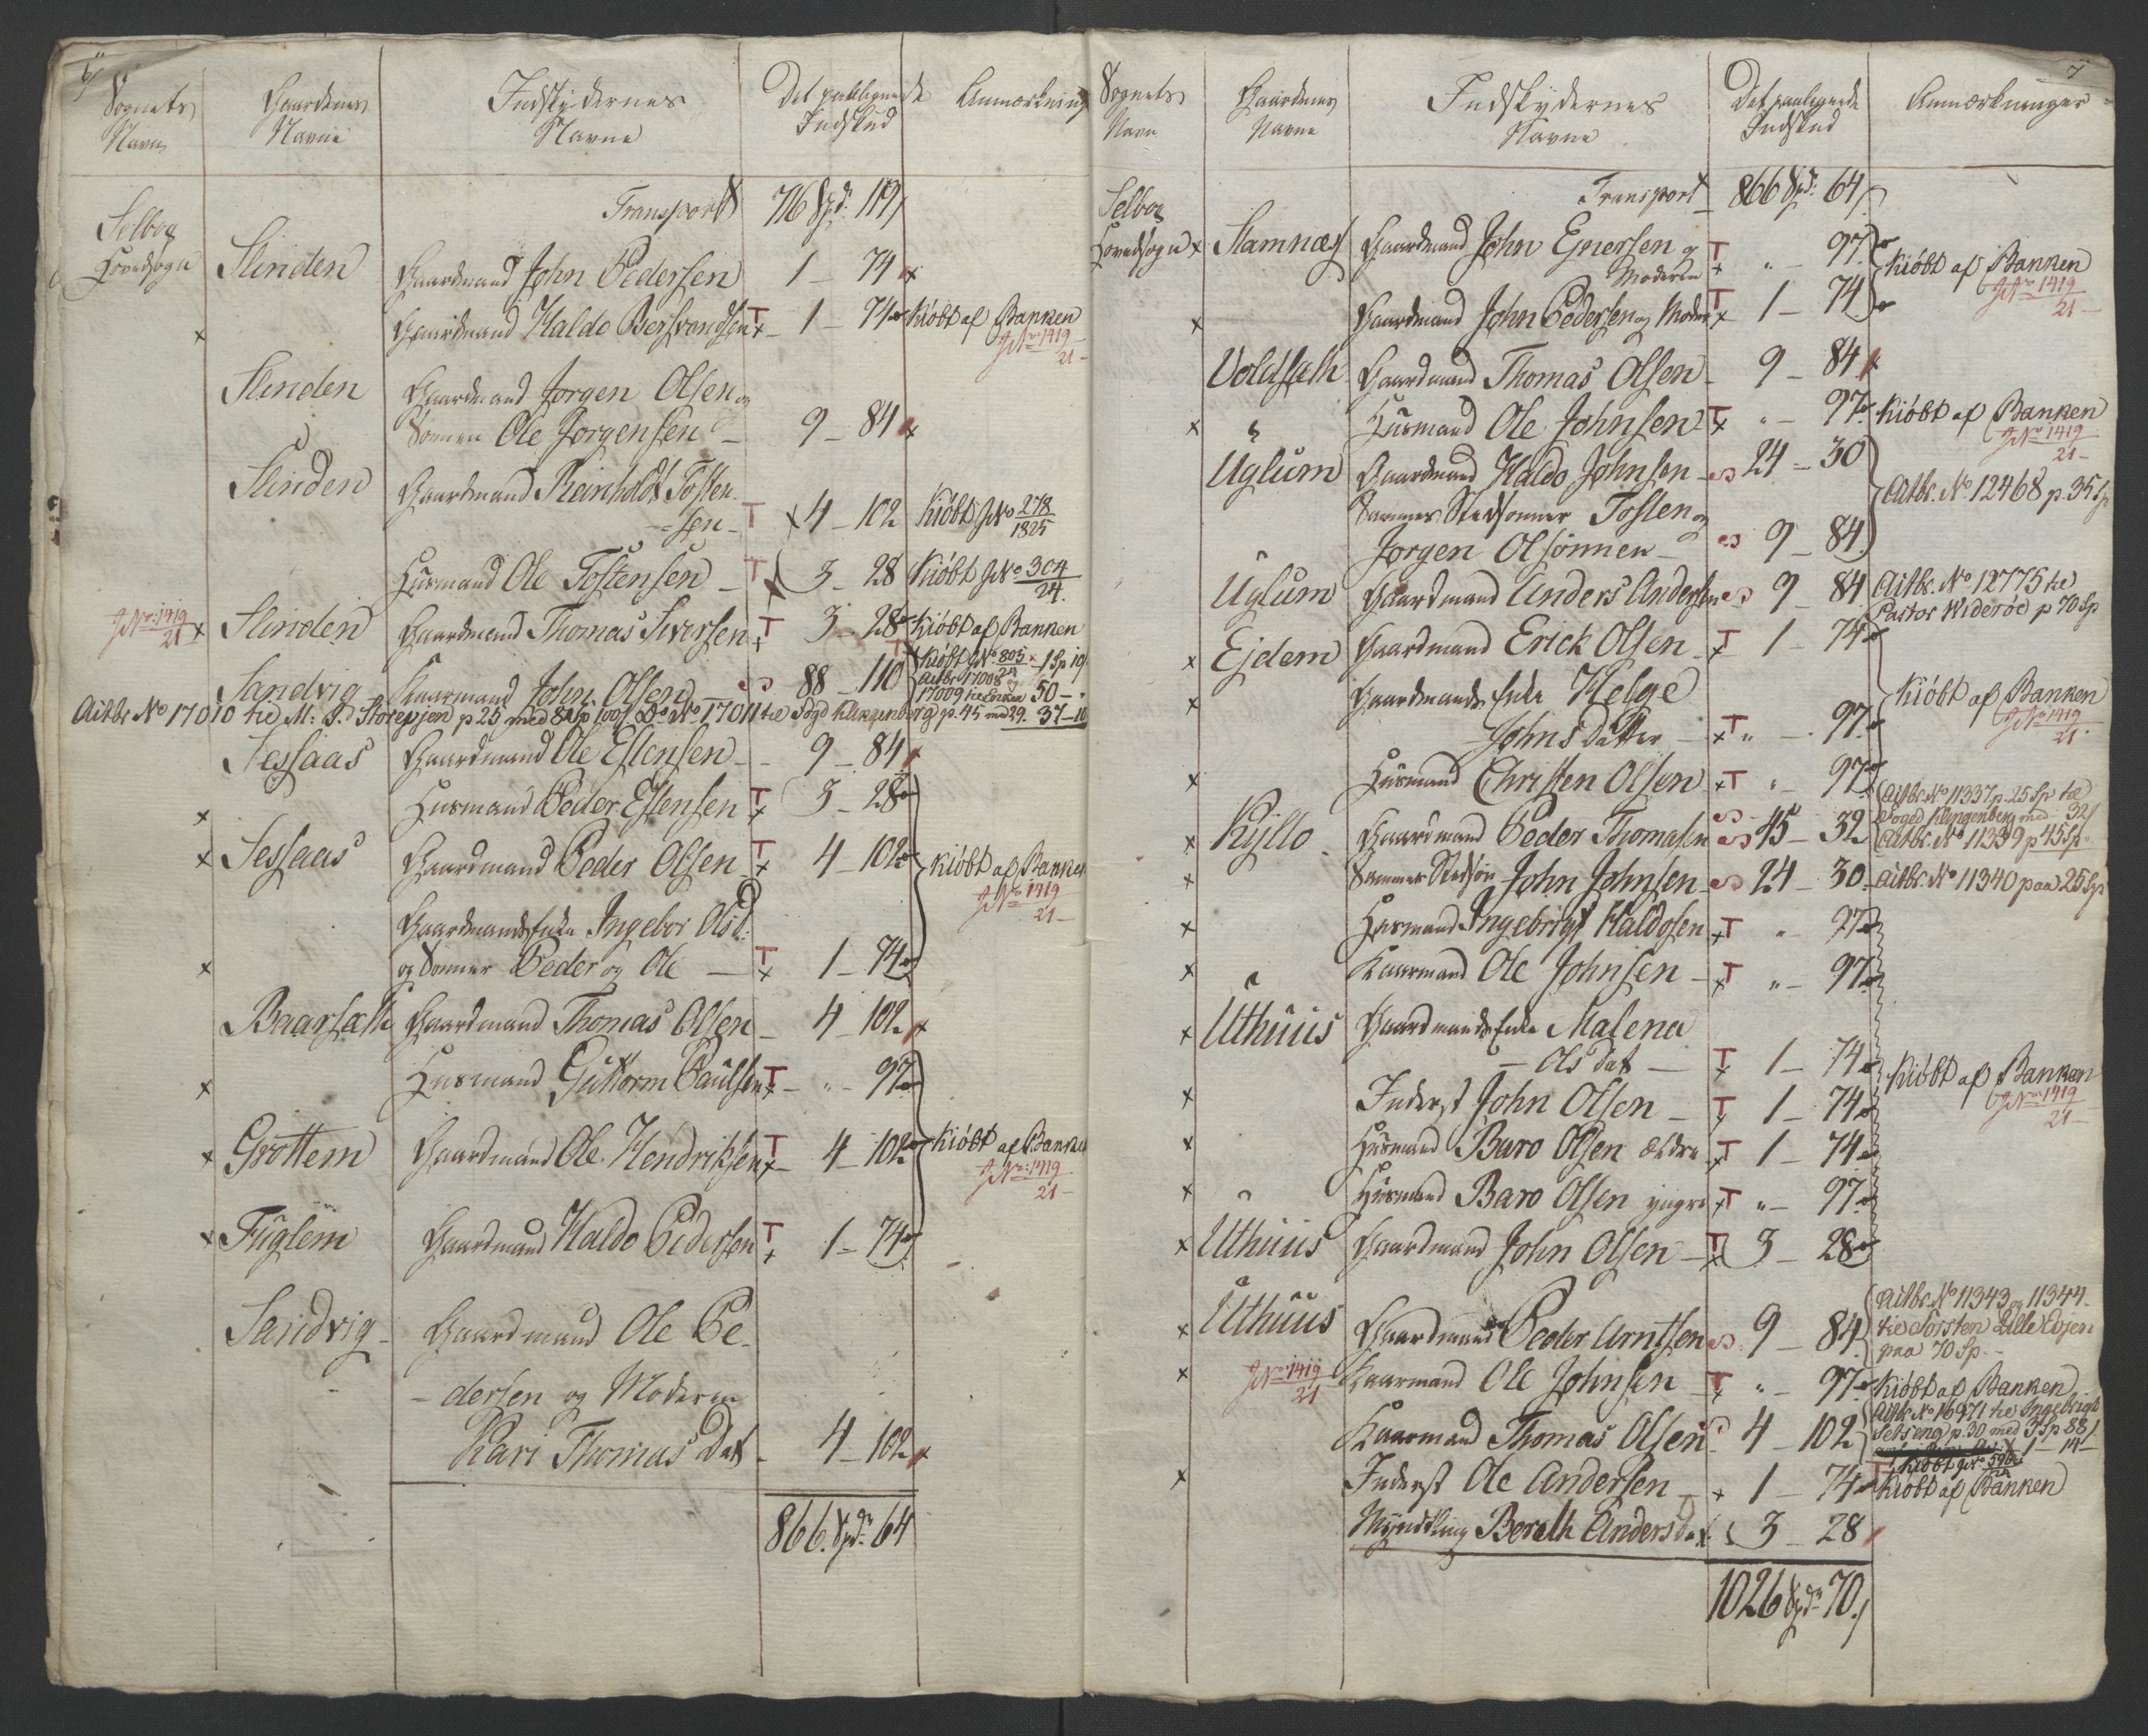 6
Sognets Gaardenes Indskydernes Det paalignede Anmærkning
Navn Navne Navne Indskud
Transport 716 Spd: 119
Selboe
Hovedsogn Slinden Gaardmand John Pedersen 1 – 74
x Gaardmand Haldo Bersvendsen T x 1 – 74 Kiøbt af Banken
JNo: 1419
21
Slinden Gaardmand Jorgen Olsen og
Sønnen Ole Jorgensen – 9 – 84
Slinden Gaardmand Reinholdt Tosten-
-sen – T x 4 – 102 Kiøbt JNo 278
1825
Huusmand Ole Tostensen – T 3 – 28 Kiøbt JNo 304
24.
JNo: 1419
21 x Slinden Gaardmand Thomas Iversen T x 3 – 28 Kiøbt af Banken
Sandvig Kaarmand John Olsen 88 – 110 Kiøbt JNo 805 – 1 Sp 19
Actbr 17008 og
17009 til Enken 50 –
Actbr No 17010 til M: S. Storepjen p 25 med 8 Sp 100 s Do No 17011 til Fogd Klingenberg p. 45 med 29. 37–10
Sessaas Gaardmand Ole Estensen – 9 – 84
x Huusmand Peder Estensen T x 3 – 28
x Sessaas Gaardmand Peder Olsen T x 4 – 102 Kiøbt af Banken
JNo: 1419
21 –
Gaardmands Enke Ingebor Olsd:
x og Sønner Peder og Ole – T x 1 – 74
Baarsæth Gaardmand Thomas Olsen – 4 – 102
x Huusmand Guttorm Paulsen T x – " – 97
x Grøttem Gaardmand Ole Hendriksen T x 4 – 102 Kiøbt af Banken
JNo: 1419
21 –
x Fuglem Gaardmand Haldo Pedersen T x 1 – 74
Sandvig – Gaardmand Ole Pe-
-dersen og Moderen
Kari Thomas Dat – 4 – 102
866. Spd: 64
7
Sognets Gaardenes Indskydernes Det paalignede Anmærkninger
Navn Navne Navne Indskud
Transport 866 Spd: 64
Selboe
Hovedsogn x Stamnæs Gaardmand John Ejnersen og T " – 97
Moderen x Kiøbt af Banken
JNo: 1419
21 –
x Gaardmand John Pedersen og Moder T x 1 – 74
Voldsæth Gaardmand Thomas Olsen – 9 – 84
x Huusmand Ole Johnsen T x " – 97 Kiøbt af Banken
JNo: 1419
21 –
Uglum Gaardmand Haldo Johnsen – 24 – 30
Sammes Stedsønner Tosten og Actbr. No 12468 p. 35 Sp
Jorgen Olsönner – 9 – 84
Uglum Gaardmand Anders Andersen 9 – 84 Actbr. No 12775 til
Pastor Widerøe p 70 Sp
x Ejdem Gaardmand Erick Olsen – T x 1 – 74
x Gaardmands Enke Helge Kiøbt af Banken
Johns Datter – T x " – 97 JNo 1419
21.
x Huusmand Christen Olsen x T " – 97
Actbr No 11337 p. 25 Sp til
Fogd Klingenberg med – 32 s
x Kyllo Gaardmand Peder Thomasen 45 – 32 Actbr. No 11339 p 45 Sp.
x Sammes Stedsøn John Johnsen – 24 – 30 Actbr. No 11340 paa 25 Sp
x Huusmand Ingebrigt Haldosen x T " – 97
x Kaarmand Ole Johnsen – x T " – 97
x Uthuus Gaardmands Enke Malena
– Ols Dat – T x 1 – 74 Kiøbt af Banken
JNo: 1419
21 –
x Inderst John Olsen – T x 1 – 74
x Huusmand Baro Olsen ældre x T 1 – 74
x Huusmand Baro Olsen yngre x T " – 97
x Uthuus Gaardmand John Olsen – T x 3 – 28
x Uthuus Gaardmand Peder Arntsen 9 – 84 Actbr. No 11343 og 11344
til Torsten Lille Evjen
paa 70 Sp. –
x JNo: 1419
21 Kaarmand Ole Johnsen T x " – 97 Kiøbt af Banken
Kaarmand Thomas Olsen 4 – 102 Actbr No 16971 til Ingebrigt
Setseng p. 30 med 3 Sp 88 s
1 – 14 –
Kiøbt JNo 596
x Inderst Ole Andersen – x 1 – 74 Kiøbt af Banken
Myndtling Bereth Anders Dat 3 – 28
1026 Spd: 70